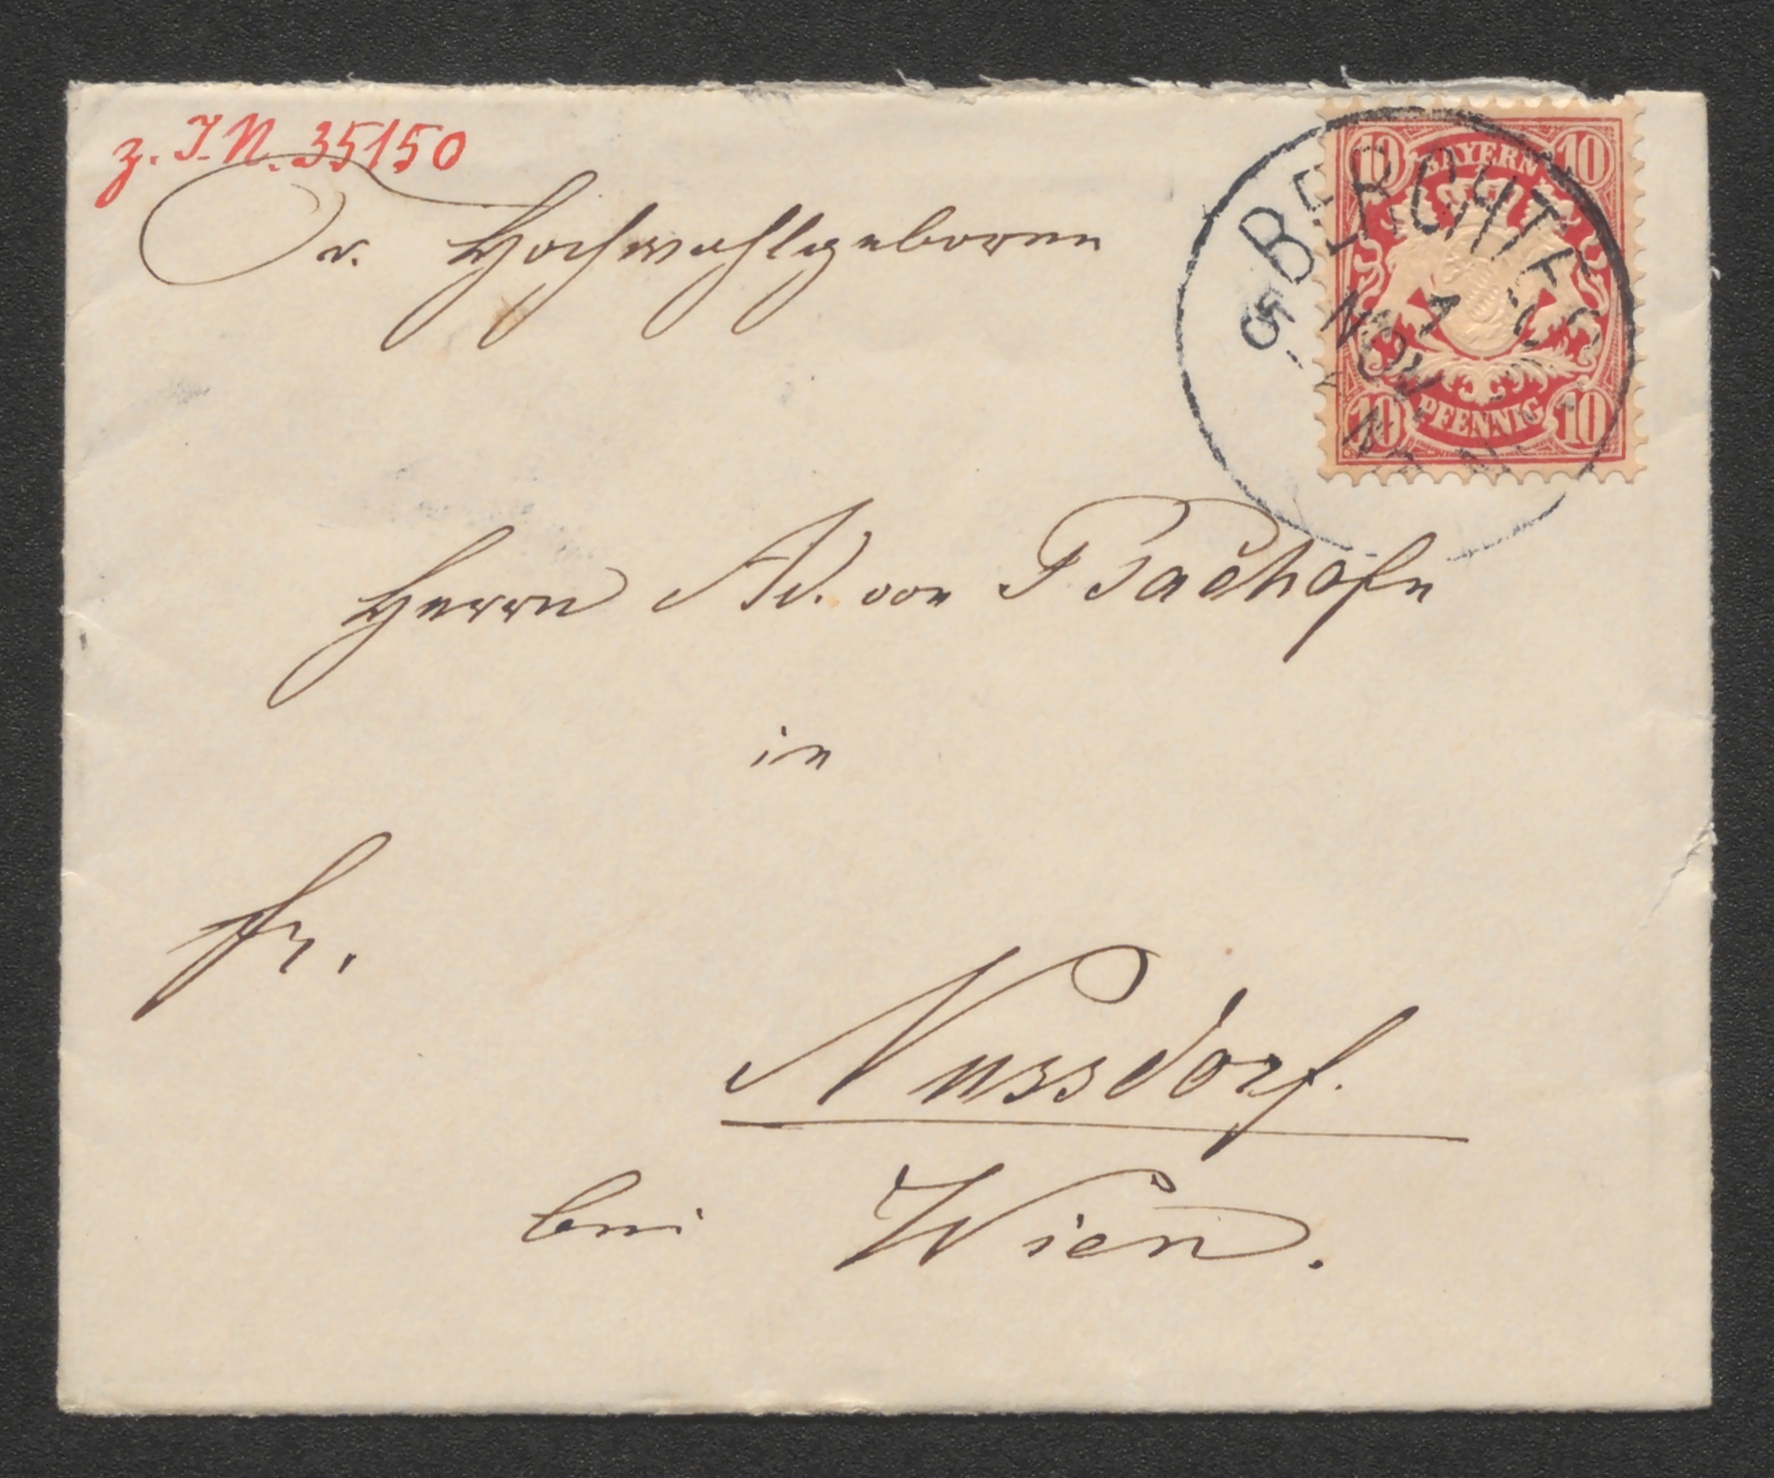 z. I. N. 35150
Sr. Hochwohlgeboren
Herrn Ad. von Bachofn
in
fr.
Nussdorf.
bei Wien.
10 BAYERN 10
10 PFENNIG 10
BERCHTES
5 NOV